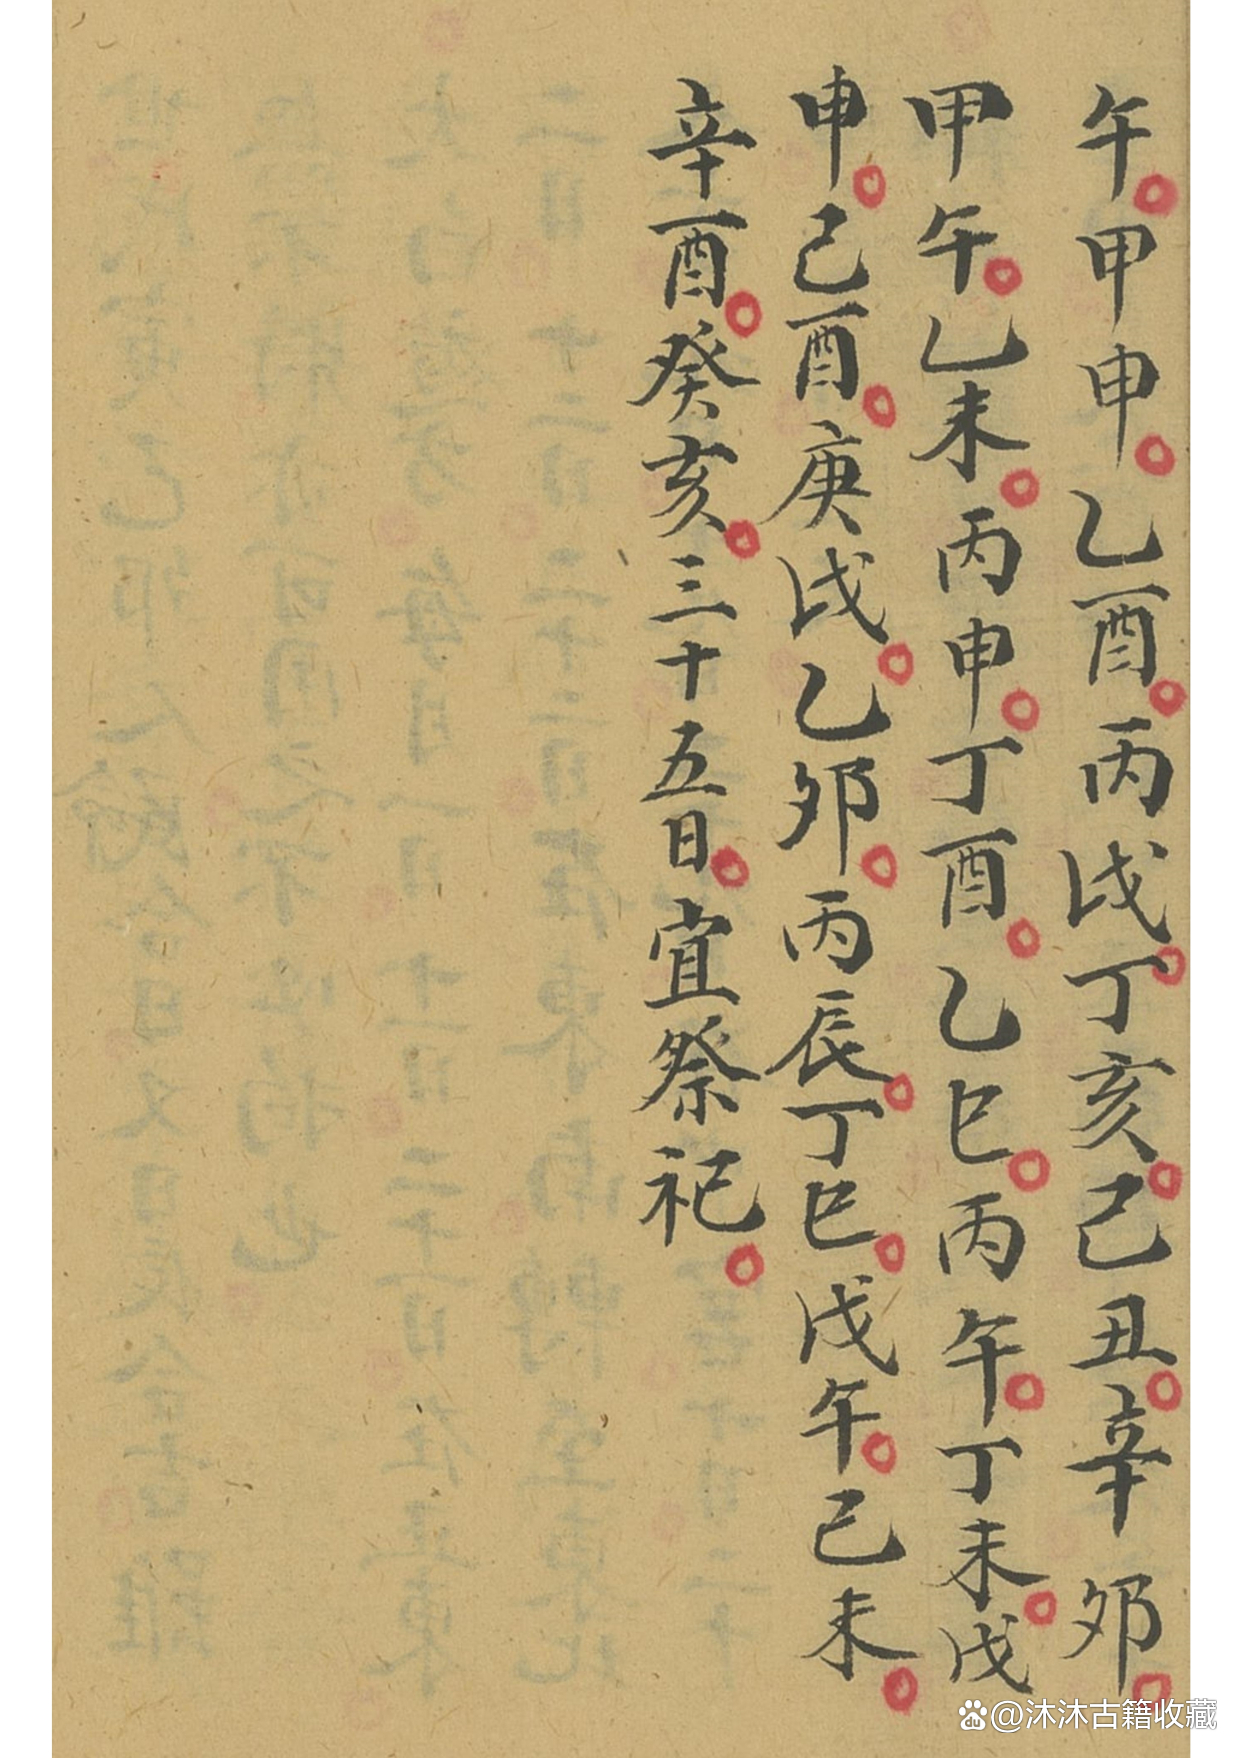 午。甲申。乙酉。丙戌。丁亥。己丑。辛卯。
甲午。乙未。丙申。丁酉。乙巳。丙午。丁未。戊
申。己酉。庚戌。乙卯。丙辰。丁巳。戊午。己未。
辛酉。癸亥。三十五日。宜祭祀。
@沐沐古籍收藏